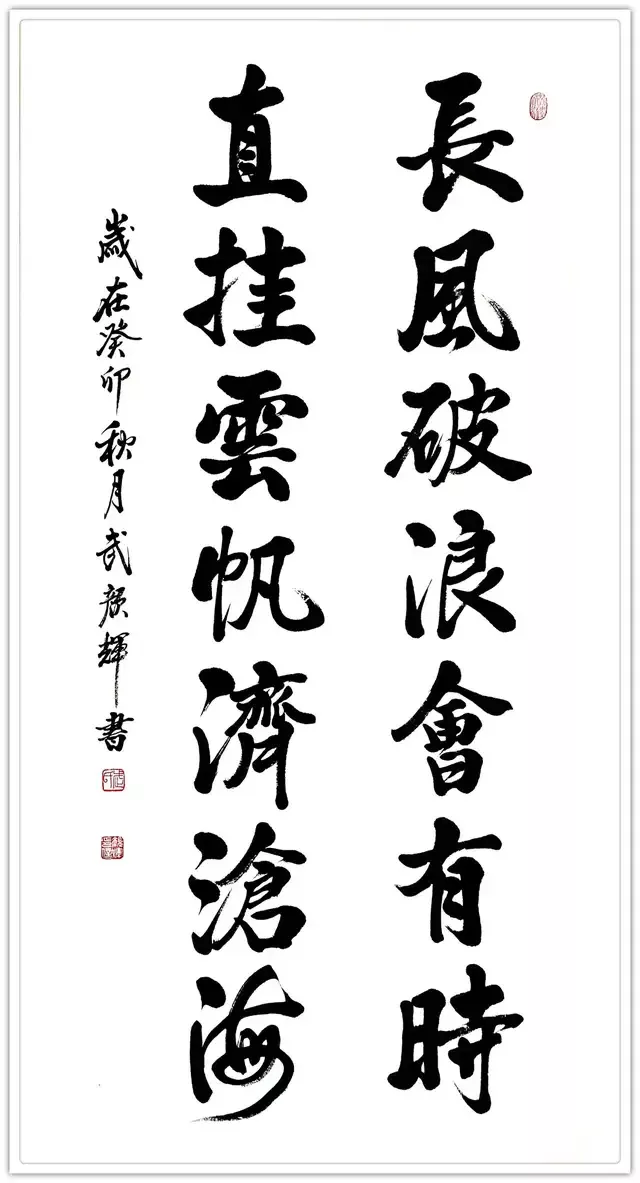 長風破浪會有時
直挂雲帆濟滄海
歲在癸卯秋月武顏輝書